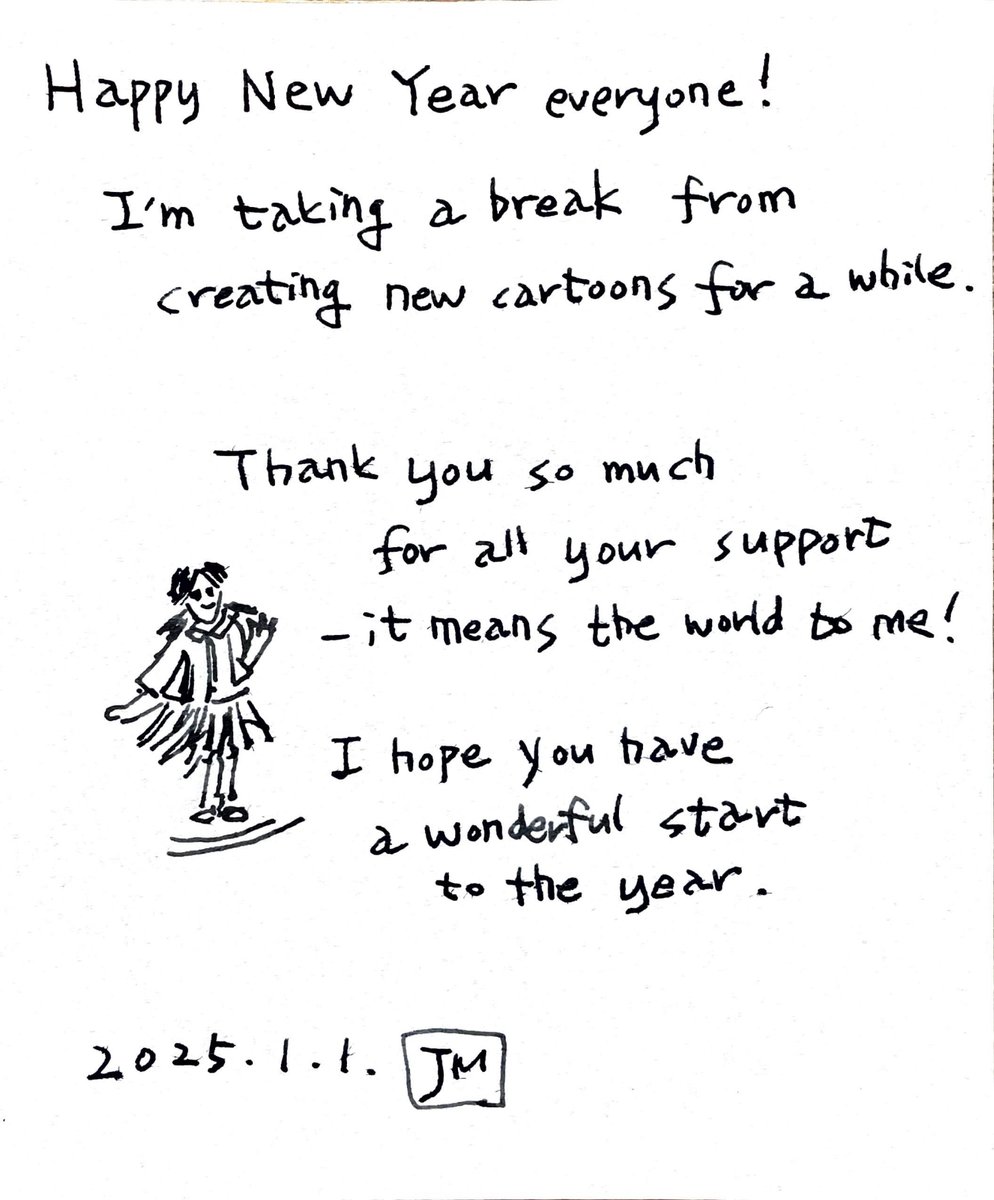 Happy New Year everyone!
I'm taking a break from
creating new cartoons for a while.
Thank you so much
for all your support
– it means the world to me!
I hope you have
a wonderful start
to the year.
2025.1.1. JM